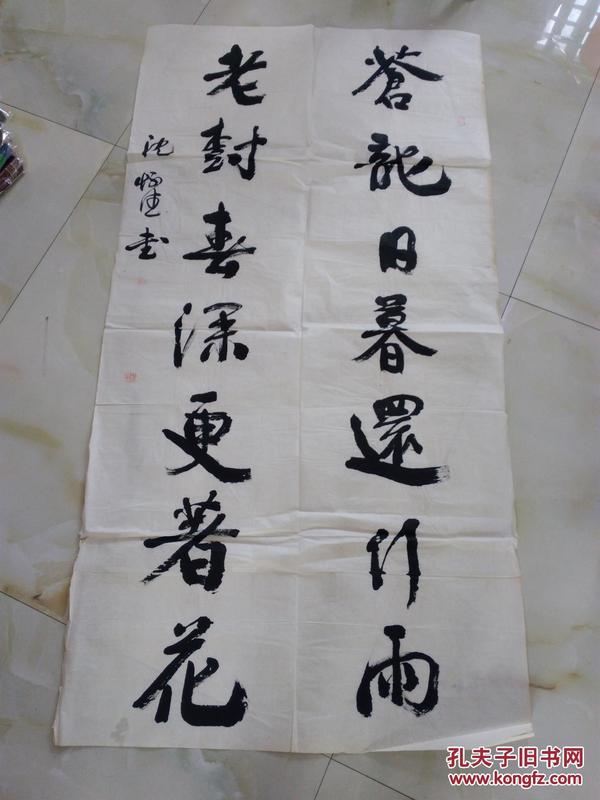 蒼龍日暮還行雨
老樹春深更著花
沈 書
孔夫子旧书网
www.kongfz.com